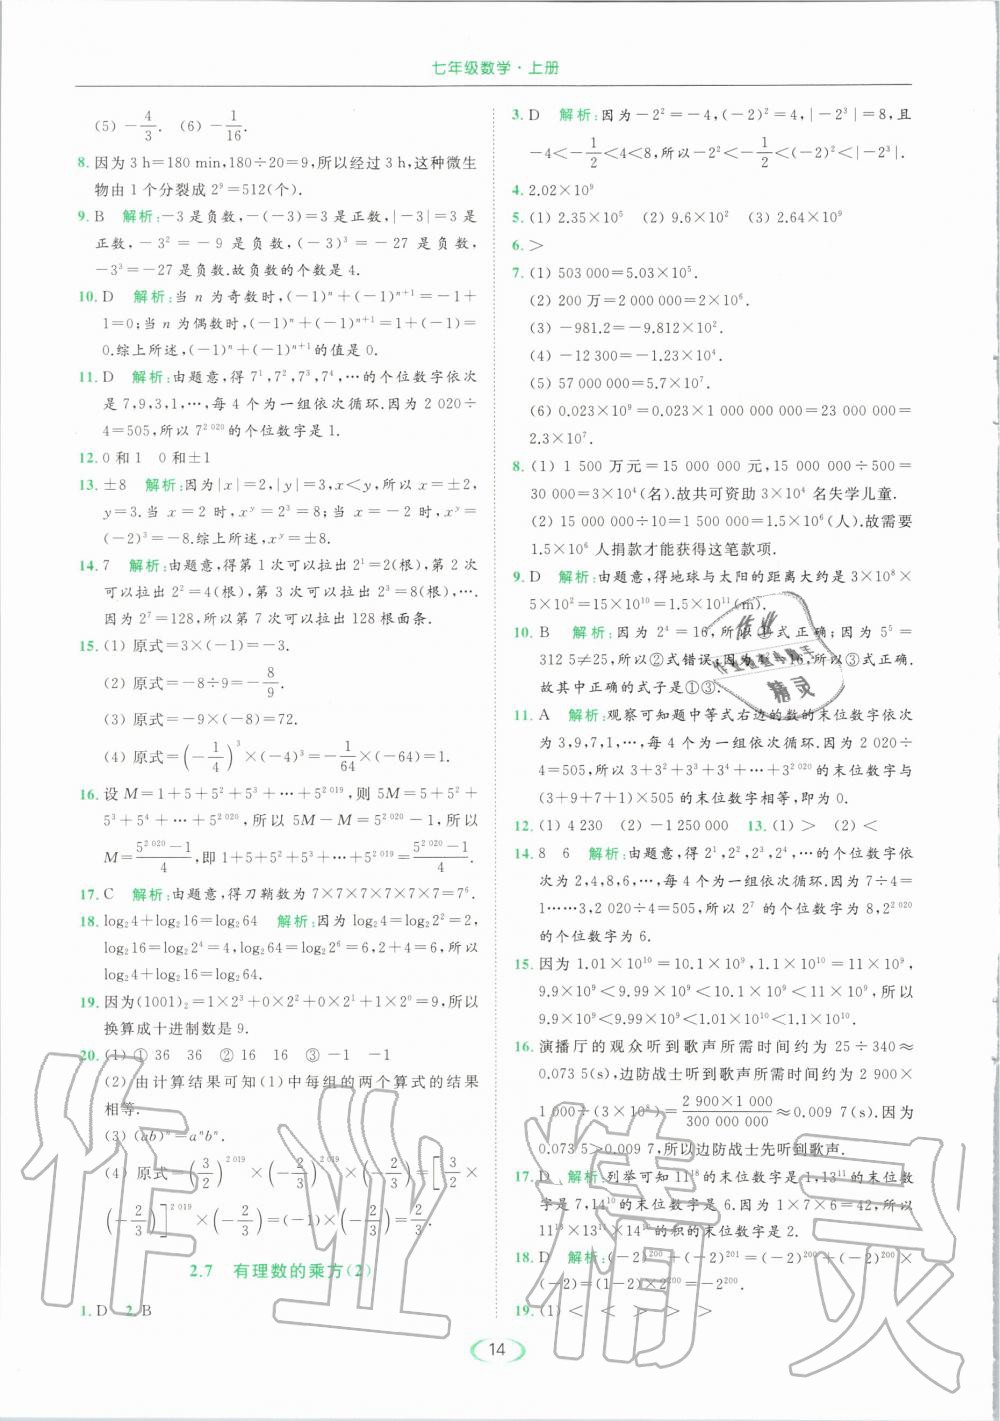 七年级数学·上册
(5) -4/3. (6) -1/16.
8. 因为 3 h=180 min,180÷20=9,所以经过 3 h,这种微生
物由 1 个分裂成 2⁹=512(个).
9. B 解析:-3 是负数,-(-3)=3 是正数,|-3|=3 是
正数,-3²=-9 是负数,(-3)³=-27 是负数,
-3³=-27 是负数.故负数的个数是 4.
10. D 解析:当 n 为奇数时,(-1)ⁿ+(-1)ⁿ⁺¹=-1+
1=0;当 n 为偶数时,(-1)ⁿ+(-1)ⁿ⁺¹=1+(-1)=
0.综上所述,(-1)ⁿ+(-1)ⁿ⁺¹的值是 0.
11. D 解析:由题意,得 7¹,7²,7³,7⁴,…的个位数字依次
是 7,9,3,1,…,每 4 个为一组依次循环.因为 2 020÷
4=505,所以 7²⁰²⁰的个位数字是 1.
12. 0 和 1 0 和±1
13. ±8 解析:因为|x|=2,|y|=3,x<y,所以 x=±2,
y=3.当 x=2 时,xʸ=2³=8;当 x=-2 时,xʸ=
(-2)³=-8.综上所述,xʸ=±8.
14. 7 解析:由题意,得第 1 次可以拉出 2¹=2(根),第 2 次
可以拉出 2²=4(根),第 3 次可以拉出 2³=8(根),….
因为 2⁷=128,所以第 7 次可以拉出 128 根面条.
15. (1) 原式=3×(-1)=-3.
(2) 原式=-8÷9=-8/9.
(3) 原式=-9×(-8)=72.
(4) 原式=(-1/4)³×(-4)³=-1/64×(-64)=1.
16. 设 M=1+5+5²+5³+…+5²⁰¹⁹,则 5M=5+5²+
5³+5⁴+…+5²⁰²⁰,所以 5M-M=5²⁰²⁰-1,所以
M=(5²⁰²⁰-1)/4,即 1+5+5²+5³+…+5²⁰¹⁹=(5²⁰²⁰-1)/4.
17. C 解析:由题意,得刀鞘数为 7×7×7×7×7×7=7⁶.
18. log₂4+log₂16=log₂64 解析:因为 log₂4=log₂2²=2,
log₂16=log₂2⁴=4,log₂64=log₂2⁶=6,2+4=6,所以
log₂4+log₂16=log₂64.
19. 因为(1001)₂=1×2³+0×2²+0×2¹+1×2⁰=9,所以
换算成十进制数是 9.
20. (1) ① 36 36 ② 16 16 ③ -1 -1
(2) 由计算结果可知(1)中每组的两个算式的结果
相等.
(3) (ab)ⁿ=aⁿbⁿ.
(4) 原式=(3/2)²⁰¹⁹×(-2/3)²⁰¹⁹×(-2/3)=[3/2×
(-2/3)]²⁰¹⁹×(-2/3)=(-1)×(-2/3)=2/3.
2.7 有理数的乘方(2)
1. D 2. B
3. D 解析:因为-2²=-4,(-2)²=4,|-2³|=8,且
-4<-1/2<4<8,所以-2²<-1/2<(-2)²<|-2³|.
4. 2.02×10⁹
5. (1) 2.35×10⁵ (2) 9.6×10² (3) 2.64×10⁹
6. >
7. (1) 503 000=5.03×10⁵.
(2) 200 万=2 000 000=2×10⁶.
(3) -981.2=-9.812×10².
(4) -12 300=-1.23×10⁴.
(5) 57 000 000=5.7×10⁷.
(6) 0.023×10⁹=0.023×1 000 000 000=23 000 000=
2.3×10⁷.
8. (1) 1 500 万元=15 000 000 元,15 000 000÷500=
30 000=3×10⁴(名).故共可资助 3×10⁴ 名失学儿童.
(2) 15 000 000÷10=1 500 000=1.5×10⁶(人).故需要
1.5×10⁶ 人捐款才能获得这笔款项.
9. D 解析:由题意,得地球与太阳的距离大约是 3×10⁸×
5×10²=15×10¹⁰=1.5×10¹¹(m).
10. B 解析:因为 2⁴=16,所以①式正确;因为 5⁵=
312 5≠25,所以②式错误;因为 4²=16,所以③式正确.
故其中正确的式子是①③.
11. A 解析:观察可知题中等式右边的数的末位数字依次
为 3,9,7,1,…,每 4 个为一组依次循环.因为 2 020÷
4=505,所以 3+3²+3³+3⁴+…+3²⁰²⁰的末位数字与
(3+9+7+1)×505 的末位数字相等,即为 0.
12. (1) 4 230 (2) -1 250 000 13. (1) > (2) <
14. 8 6 解析:由题意,得 2¹,2²,2³,2⁴,…的个位数字依
次为 2,4,8,6,…,每 4 个为一组依次循环.因为 7÷4=
1……3,2 020÷4=505,所以 2⁷ 的个位数字为 8,2²⁰²⁰
的个位数字为 6.
15. 因为 1.01×10¹⁰=10.1×10⁹,1.1×10¹⁰=11×10⁹,
9.9×10⁹<9.99×10⁹<10.1×10⁹<11×10⁹,所以
9.9×10⁹<9.99×10⁹<1.01×10¹⁰<1.1×10¹⁰.
16. 演播厅的观众听到歌声所需时间约为 25÷340≈
0.073 5(s),边防战士听到歌声所需时间约为 2 900×
1 000÷(3×10⁸)=(2 900×1 000)/(300 000 000)≈0.009 7(s).因为
0.073 5>0.009 7,所以边防战士先听到歌声.
17. D 解析:列举可知 11¹⁸的末位数字是 1,13¹¹的末位数
字是 7,14¹⁰的末位数字是 6.因为 1×7×6=42,所以
11¹⁸×13¹¹×14¹⁰的积的末位数字是 2.
18. D 解析:(-2)²⁰⁰+(-2)²⁰¹=(-2)²⁰⁰+(-2)²⁰⁰×
(-2)=(1-2)×(-2)²⁰⁰=-2²⁰⁰.
19. (1) < < > > >
14
作业精灵
作业
作业检查小助手
精灵